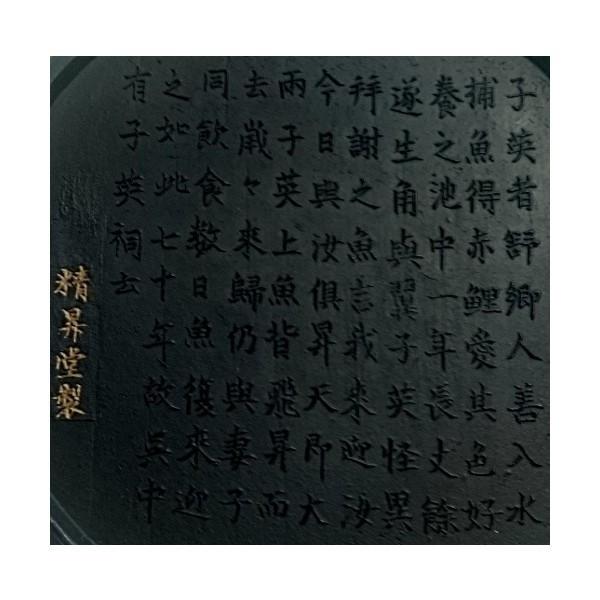 子英者舒鄉人善入水
捕魚得赤鯉愛其色好
養之池中一年長丈餘
遂生角與翼子英怪異
拜謝之魚言我來迎汝
今日與汝俱昇天即大
雨子英上魚背飛昇而
去歲々來歸仍與妻子
同飲食數日魚復來迎
之如此七十年故吳中
有子英祠云
精昇堂製